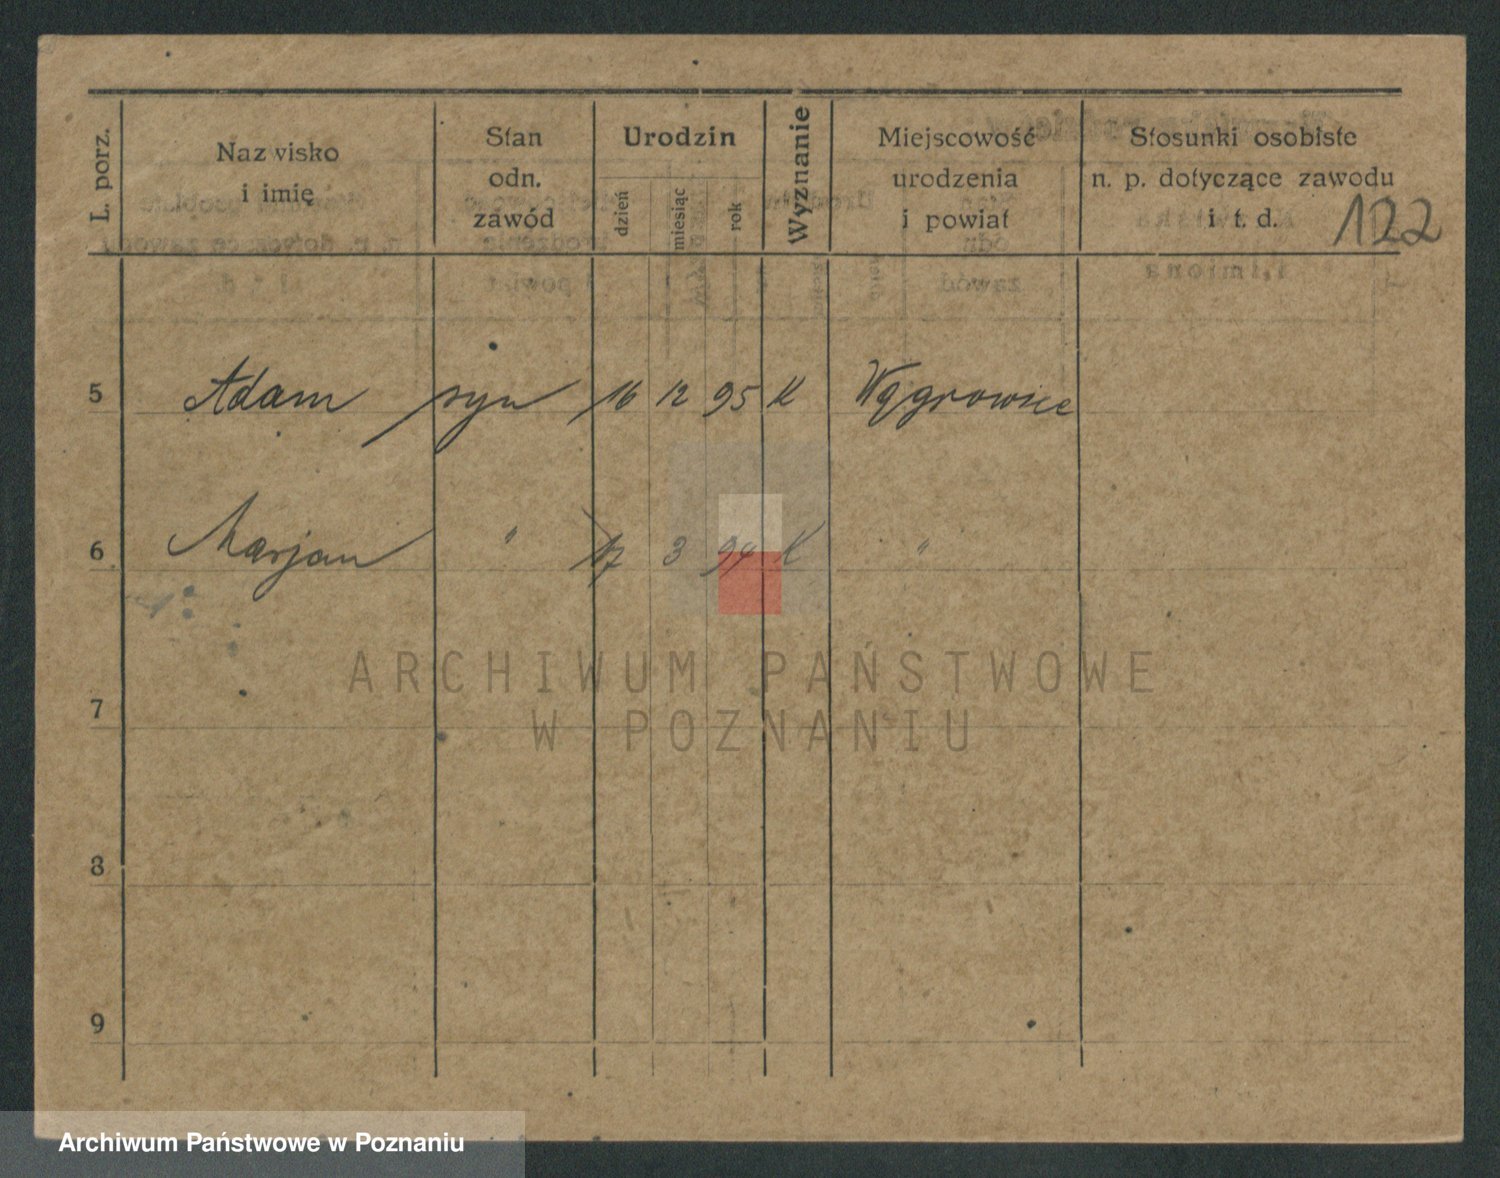 L. porz.
Nazwisko
i imię
Stan
odn.
zawód
Urodzin
dzień
miesiąc
rok
Wyznanie
Miejscowość
urodzenia
i powiat
Stosunki osobiste
n. p. dotyczące zawodu
i t. d.
122
5 Adam syn 16 12 95 K Wągrowiec
6 Marjan " 17 3 94 K "
7
8
9
ARCHIWUM PAŃSTWOWE
W POZNANIU
Archiwum Państwowe w Poznaniu